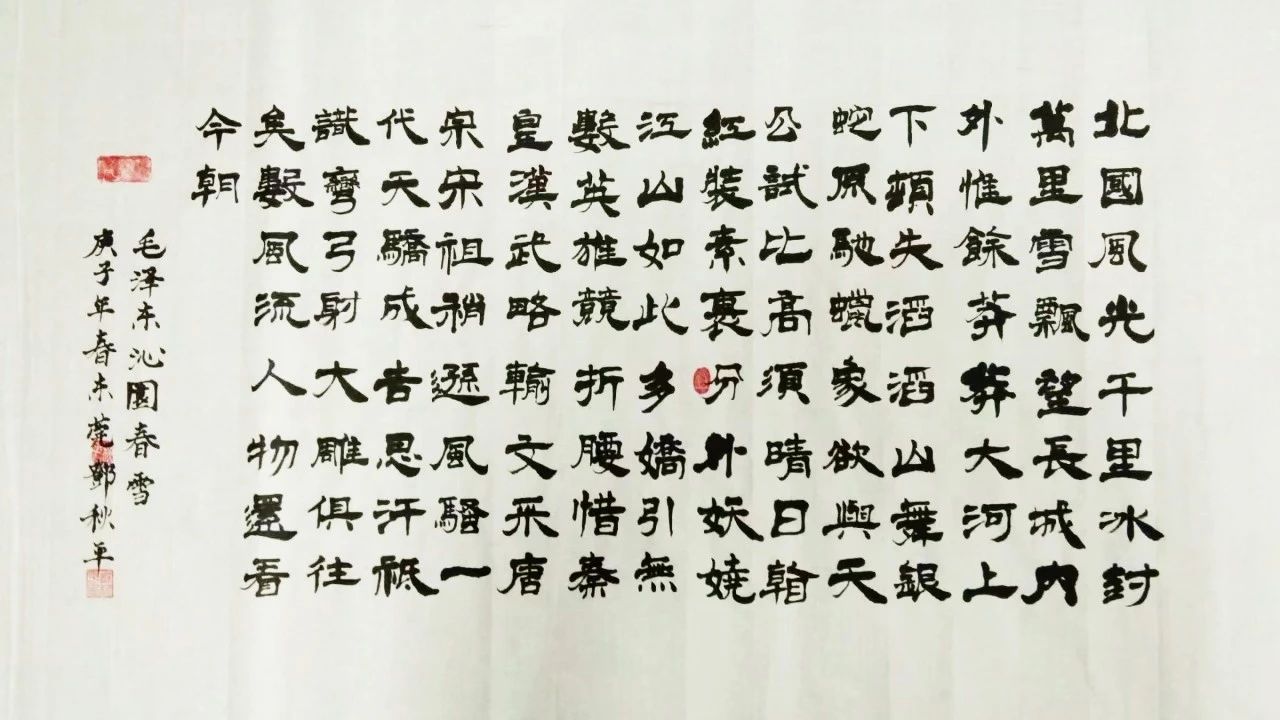 北國風光千里冰封
萬里雪飄望長城内
外惟餘莽莽大河上
下頓失滔滔山舞銀
蛇原馳蠟象欲與天
公試比高須晴日看
紅裝素裹分外妖嬈
江山如此多嬌引無
數英雄競折腰惜秦
皇漢武略輸文采唐
宗宋祖稍遜風騷一
代天驕成吉思汗祗
識彎弓射大雕俱往
矣數風流人物還看
今朝
毛泽东沁園春雪
庚子年春末莞鄧秋平